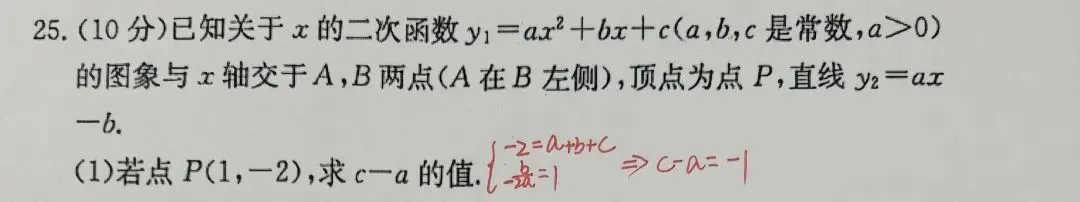 25.(10分)已知关于x的二次函数y₁=ax²+bx+c(a,b,c是常数,a>0)
的图象与x轴交于A,B两点(A在B左侧),顶点为点P,直线y₂=ax
-b.
(1)若点P(1,-2),求c-a的值. {-2=a+b+c
b/-2a=1 ⇒ c-a=-1